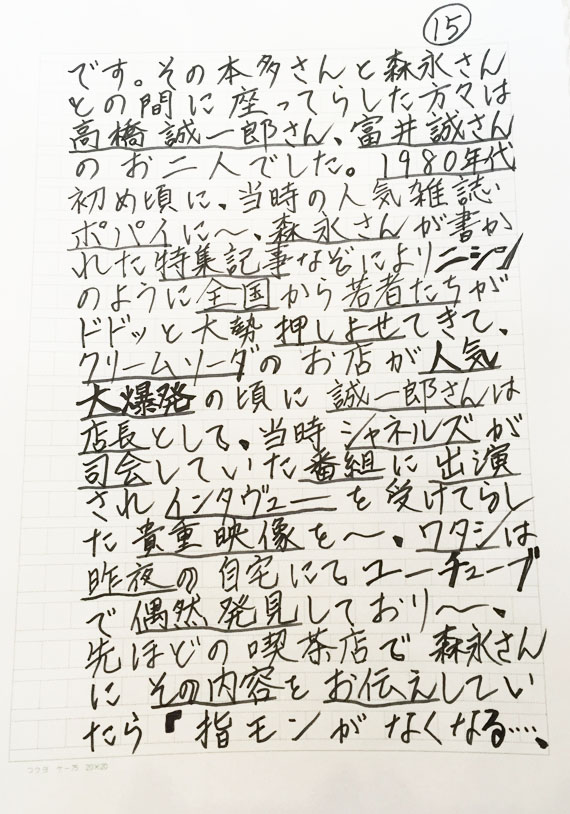 ⑮
です。その本多さんと森永さん
との間に座ってらした方々は
高橋誠一郎さん、富井誠さん
のお二人でした。1980年代
初め頃に、当時の人気雑誌
ポパイに〜、森永さんが書か
れた特集記事なぞによりニシン
のように全国から若者たちが
ドドッと大勢押しよせてきて、
クリームソーダのお店が人気
大爆発の頃に誠一郎さんは
店長として、当時シャネルズが
司会していた番組に出演
されインタヴューを受けてらし
た貴重映像を〜、ワタシは
昨夜の自宅にてユーチューブ
で偶然発見しており〜、
先ほどの喫茶店で森永さん
にその内容をお伝えしてい
たら『指モンがなくなる‥‥、
コクヨ ケー75 20×20